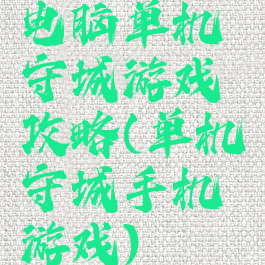 电脑单机
守城游戏
攻略(单机
守城手机
游戏)